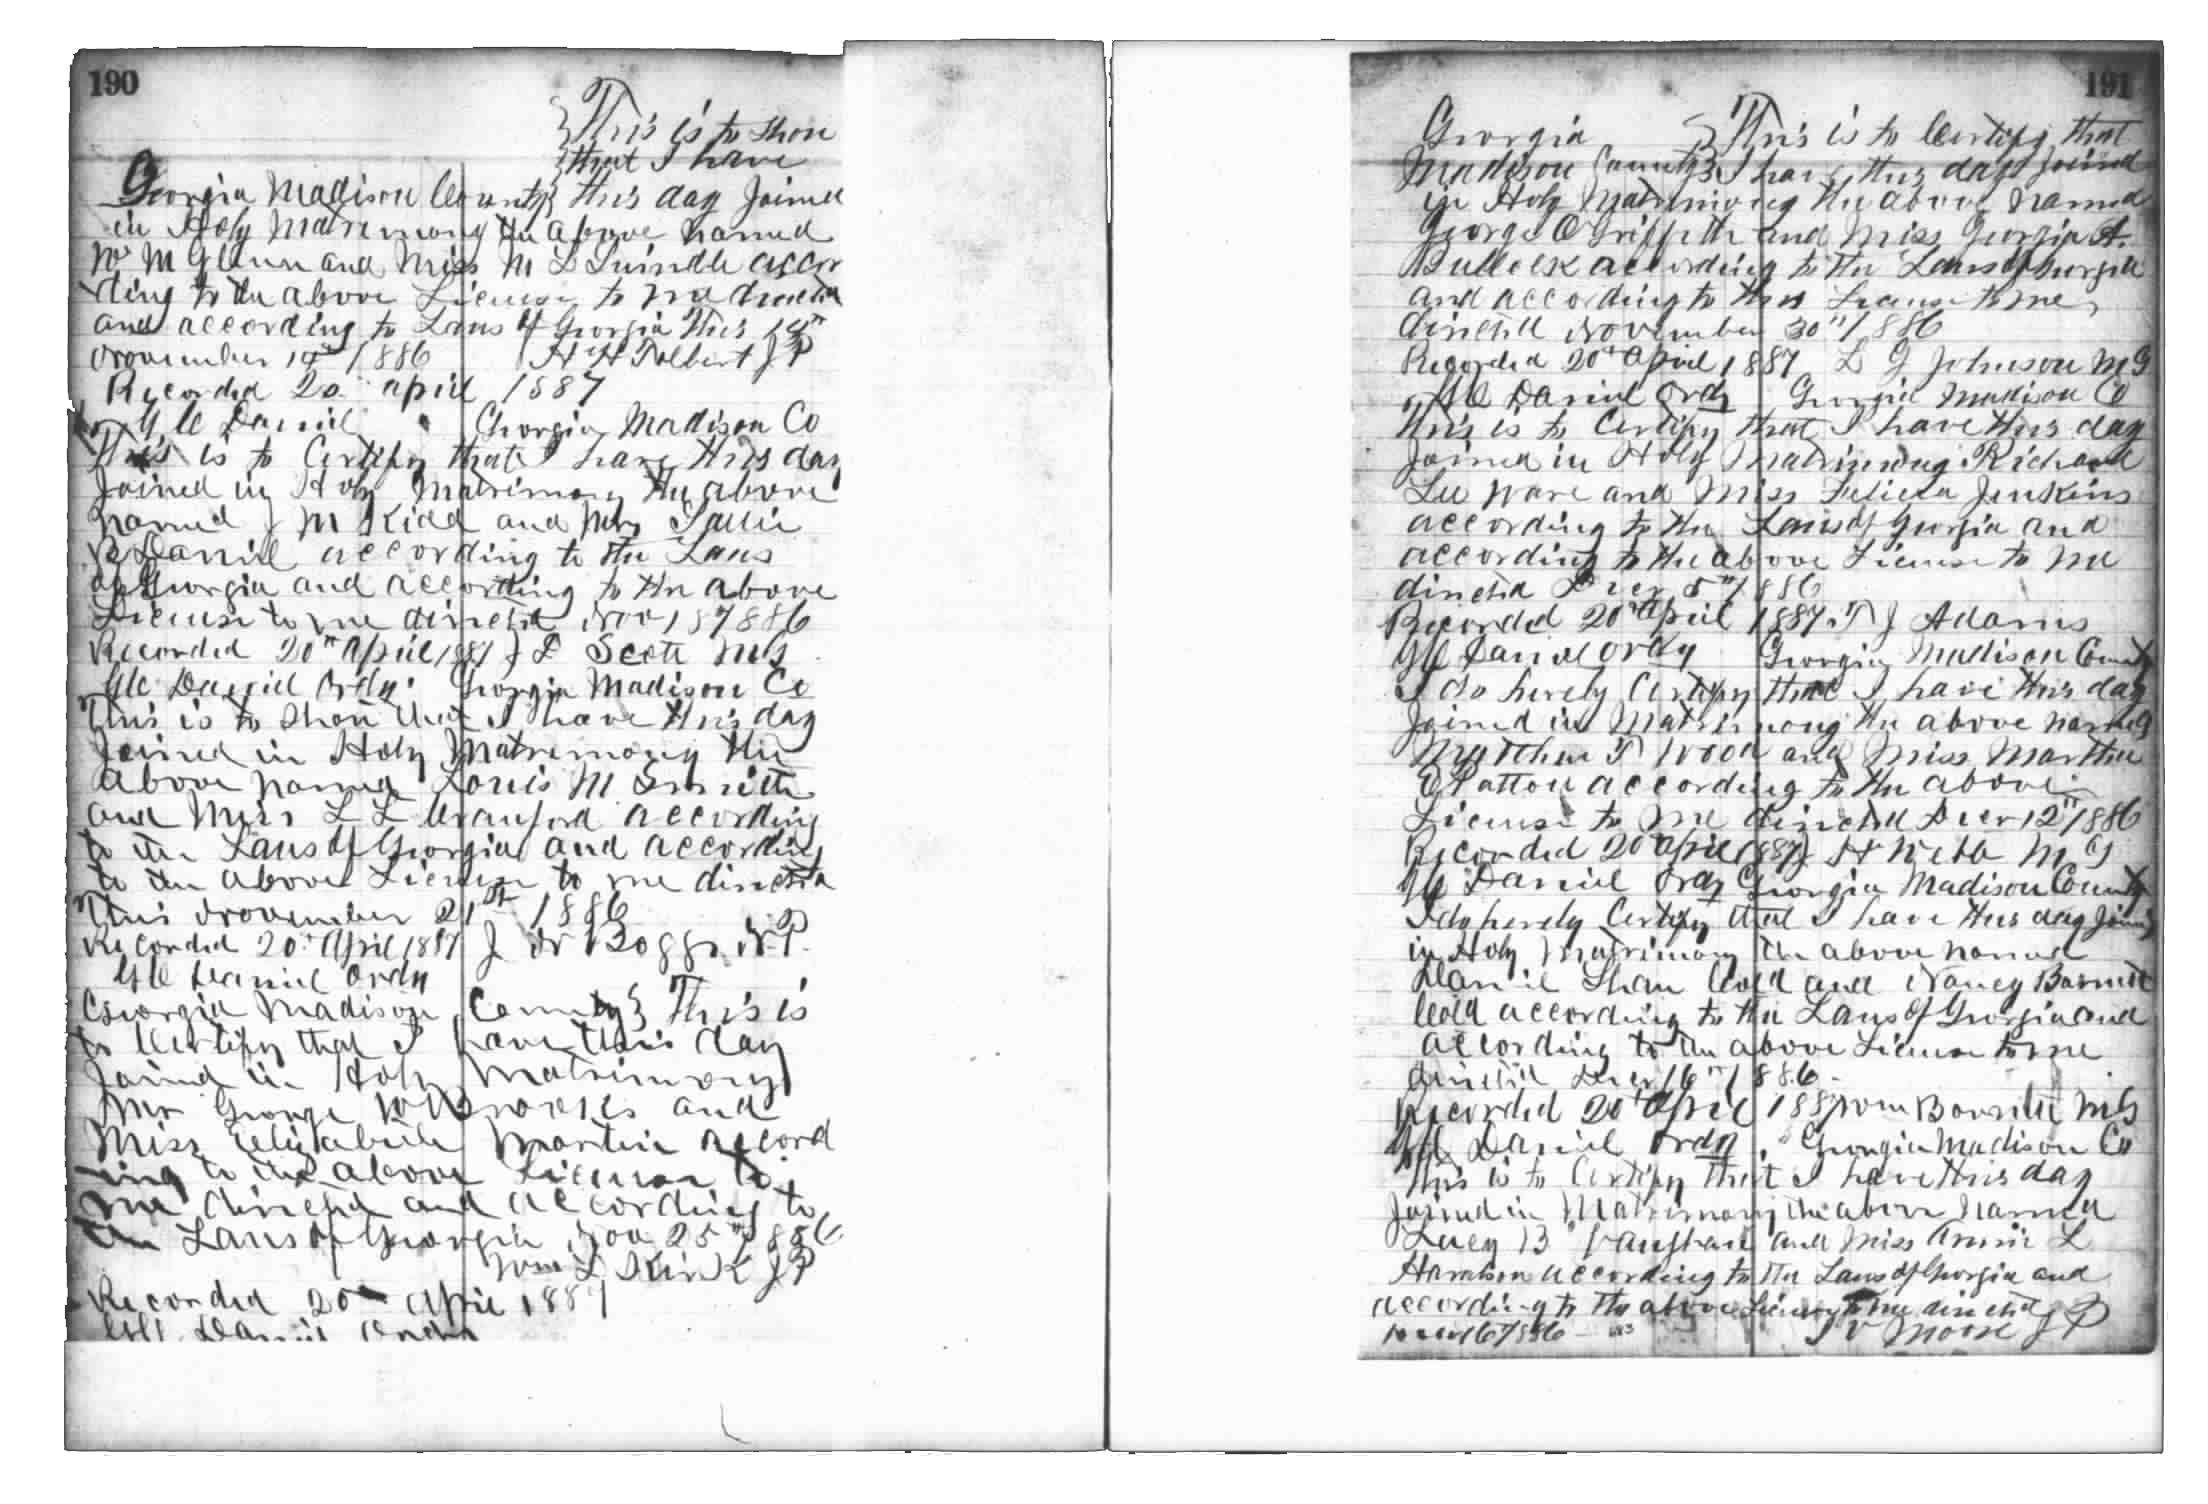 190
This is to Show
that I have
Georgia Madison County this day Joined
in Holy Matrimony the above named
W M Glenn and Miss M L Swindle accor
ding to the above License to me directed
and according to Laws of Georgia This 14th
November 14th 1886 H H Tolbert J P
Recorded 20 april 1887
G C Daniel Georgia Madison Co
This is to Certify that I have this day
Joined in Holy Matrimony the above
named J M Kidd and Mrs Sallie
R Daniel according to the Laws
of Georgia and according to the above
License to me directed Nov 1886
Recorded 20th april 1887 J L Scott MG
G C Daniel Ordy Georgia Madison Co
This is to Show that I have this day
Joined in Holy Matrimony the
above named Louis M Smith
and Miss L L Cranford according
to the Laws of Georgia and according
to the above License to me directed
This November 21st 1886
Recorded 20th April 1887 J N Boggs N.P.
G C Daniel Ordy
Georgia Madison County This is
to Certify that I have this day
Joined in Holy Matrimony
Mr George W and
Miss Elizabeth Martin accord
ing to the above License to
me directed and according to
the Laws of Georgia Nov 25th 1886
Wm L Kirk J P
Recorded 20th april 1887
G C Daniel Ordy
191
Georgia This is to Certify that
Madison County I have this day Joined
in Holy Matrimony the above named
George O Griffith and Miss Georgia A.
Bullock according to the Laws of Georgia
and according to this License to me
directed November 30th 1886
Recorded 20th april 1887 L G Johnson M G
G C Daniel Ordy Georgia Madison Co
This is to Certify that I have this day
Joined in Holy Matrimony Richard
Lee Ware and Miss Felicia Jenkins
according to the Laws of Georgia and
according to the above License to me
directed Decr 5th 1886
Recorded 20th April 1887 T J Adams
G C Daniel Ordy Georgia Madison County
I do herely Certify that I have this day
Joined in Matrimony the above named
T Wood and Miss Martha
E Patton according to the above
License to me directed Decr 12th 1886
Recorded 20th april 1887 J H Webb M G
G C Daniel Ordy Georgia Madison County
I do herely Certify that I have this day Joined
in Holy Matrimony the above named
Daniel Shaw Cold and Nancy Barnett
Cold according to the Laws of Georgia and
according to the above License to me
directed Decr 16th 1886
Recorded 20th April 1887 Wm Barnett MG
G C Daniel Ordy Georgia Madison Co
This is to Certify that I have this day
Joined in Matrimony the above named
Lucy B Vaughan and Miss Annie L
Harrison according to the Laws of Georgia and
according to the above License to me directed
1886 J V Moore J P